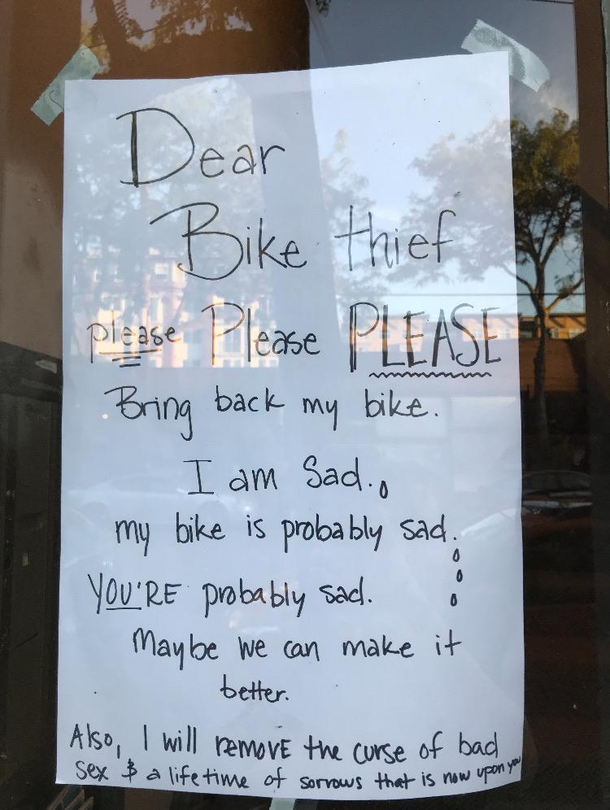 Dear
Bike thief
please Please PLEASE
Bring back my bike.
I am Sad.
my bike is probably sad.
YOU'RE probably sad.
Maybe we can make it
better.
Also, I will remove the curse of bad
sex & a lifetime of sorrows that is now upon you